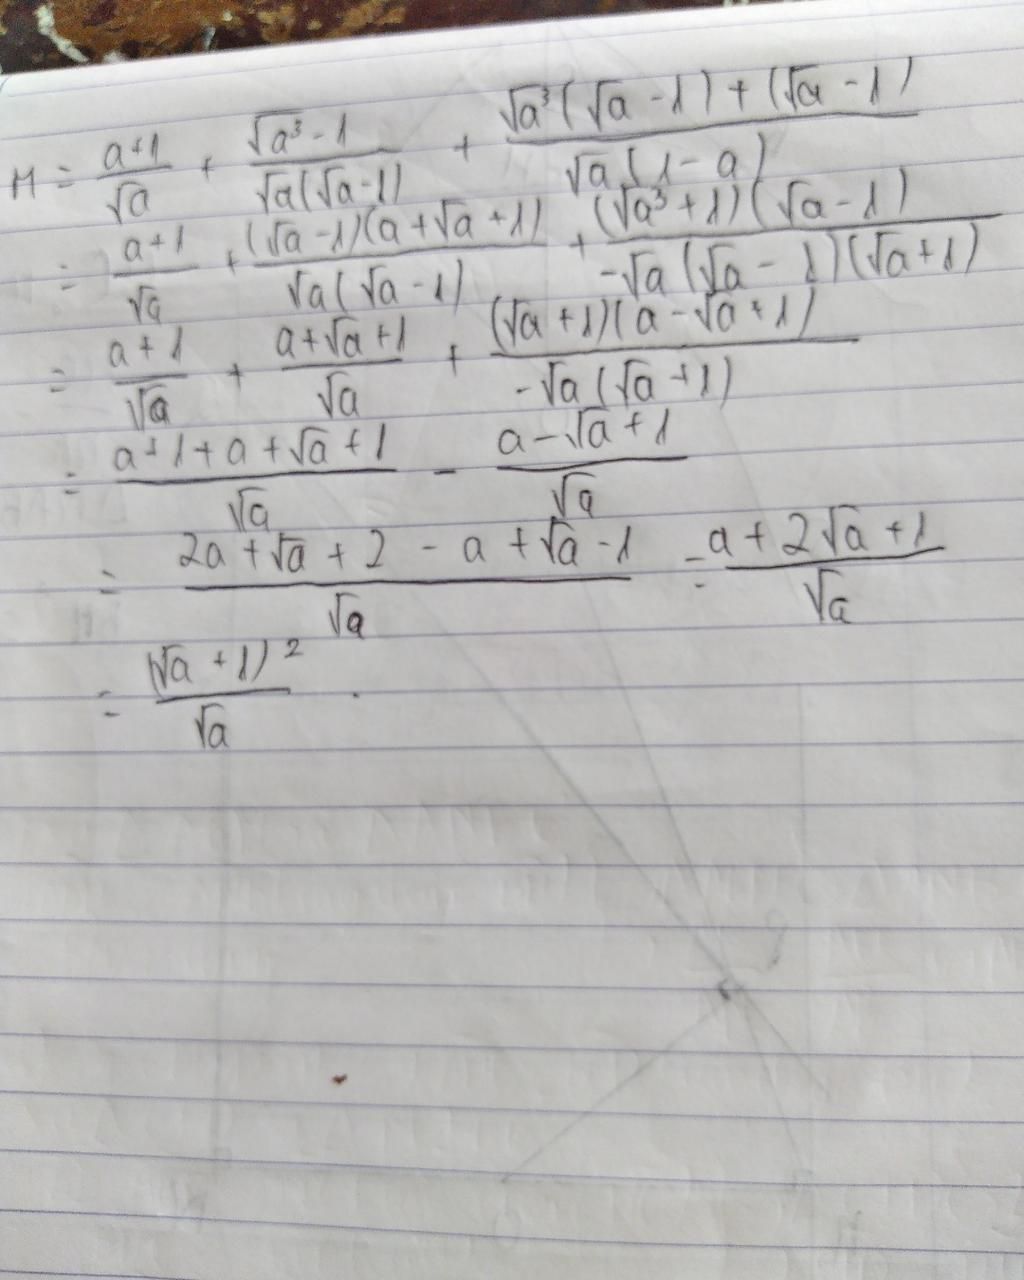 M = \frac{a+1}{\sqrt{a}} + \frac{\sqrt{a^3}-1}{\sqrt{a}(\sqrt{a}-1)} + \frac{\sqrt{a^3}(\sqrt{a}-1)+(\sqrt{a}-1)}{\sqrt{a}(1-a)}
= \frac{a+1}{\sqrt{a}} + \frac{(\sqrt{a}-1)(a+\sqrt{a}+1)}{\sqrt{a}(\sqrt{a}-1)} + \frac{(\sqrt{a^3}+1)(\sqrt{a}-1)}{-\sqrt{a}(\sqrt{a}-1)(\sqrt{a}+1)}
= \frac{a+1}{\sqrt{a}} + \frac{a+\sqrt{a}+1}{\sqrt{a}} + \frac{(\sqrt{a}+1)(a-\sqrt{a}+1)}{-\sqrt{a}(\sqrt{a}+1)}
= \frac{a+1+a+\sqrt{a}+1}{\sqrt{a}} - \frac{a-\sqrt{a}+1}{\sqrt{a}}
= \frac{2a+\sqrt{a}+2-a+\sqrt{a}-1}{\sqrt{a}} = \frac{a+2\sqrt{a}+1}{\sqrt{a}}
= \frac{(\sqrt{a}+1)^2}{\sqrt{a}} .